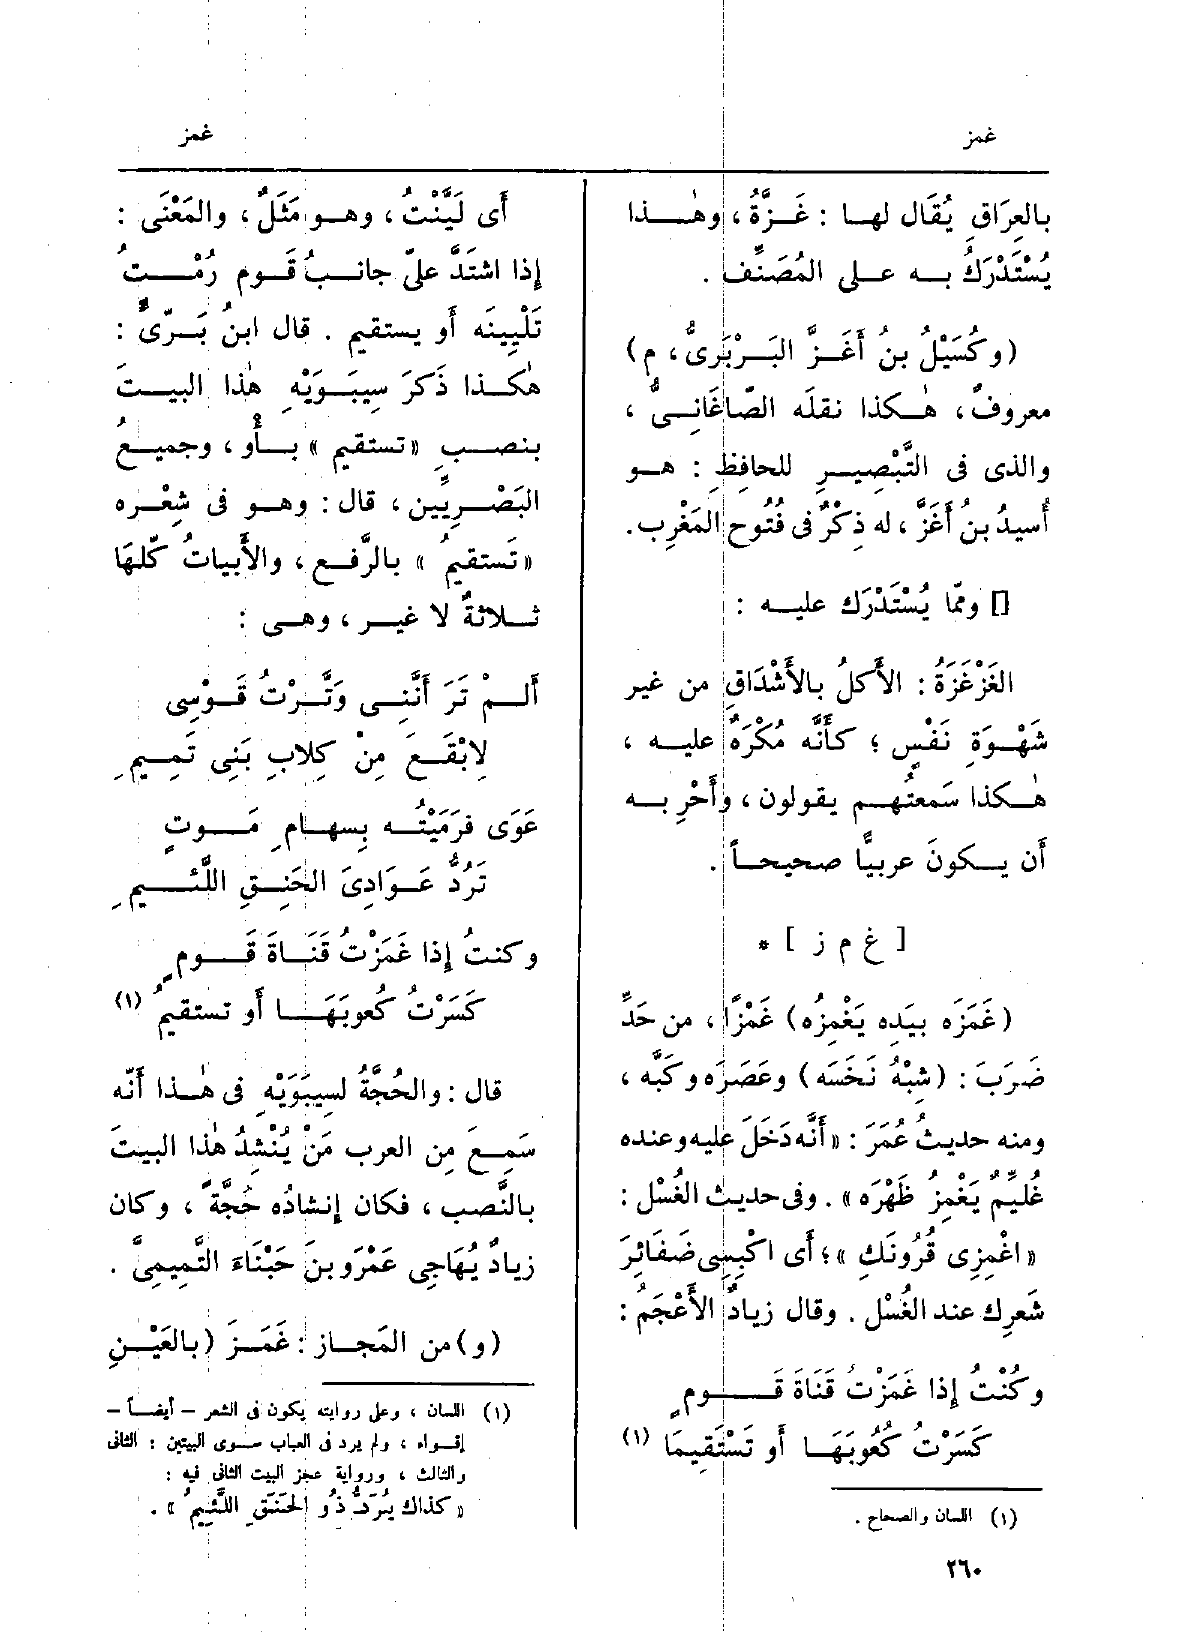 غمز
غمز
بالعِرَاقِ يُقَال لها : غَـزَّةُ ، وهٰـذا
يُسْتَدْرَكُ بـه علـى المُصَنِّف .
( وكُسَيْلُ بنُ أَغَـزَّ البَـرْبَرِىُّ ، م )
معروفٌ ، هٰـكذا نقلَه الصّاغَانِـىُّ ،
والذى فى التَّبْصِيـرِ للحافِظِ : هـو
أُسيدُ بنُ أَغَزَّ ، له ذِكْرٌ فى فُتُوحِ المَغْرِب.
[] وممّا يُسْتَدْرَك عليـه :
الغَزْغَزَةُ : الأَكلُ بالأَشْدَاقِ من غير
شَهْـوَةِ نَفْسٍ ؛ كأَنَّه مُكْرَهٌ عليـه ،
هٰـكذا سَمعتُهـم يقولون ، وأَحْرِ بـه
أن يـكونَ عربيًّا صحيحـاً .
[ غ م ز ] *
( غَمَزَه بيَدِه يَغْمِزُه ) غَمْزًا ، من حَدِّ
ضَرَبَ : ( شِبْهُ نَخَسَه ) وعَصَرَه وكَبَّه ،
ومنه حديثُ عُمَرَ : « أَنَّه دَخَلَ عليه وعنده
غُلَيِّمٌ يَغْمِزُ ظَهْرَه » . وفى حديثِ الغُسْل :
« اغْمِزِى قُرُونَكِ » ؛ أَى اكْبِسِى ضَفَائِرَ
شَعرِك عند الغُسْل . وقال زيادٌ الأَعْجَمُ :
وكُنْتُ إذا غَمَزْتُ قَنَاةَ قَـــوم
كَسَرْتُ كُعُوبَهَـا أو تَسْتَقِيمَا (١)
(١) اللسان والصحاح .
٢٦٠
أى لَيَّنْتُ ، وهـو مَثَلٌ ، والمَعْنَى :
إذا اشتَدَّ علىَّ جانـبُ قَـوم رُمْـتُ
تَلْيِينَه أَو يستقيم . قال ابنُ بَـرِّىّ :
هٰكـذا ذَكَرَ سِيبَـوَيْهِ هٰذا البيـتَ
بنصـبِ « تستقيم » بـأَو ، وجميـعُ
البَصْـرِيِّين ، قال : وهـو فى شِعْـره
« تَستقيمُ » بالرَّفـع ، والأَبياتُ كلّهَا
ثـلاثةٌ لا غيـر ، وهـى :
أَلـمْ تَرَ أَنَّنِـى وَتَّـرْتُ قَـوْسِى
لابْقَـعَ مِنْ كِلابِ بَنِى تَمِيـمِ
عَوَى فرَمَيْتُـه بِسِهـامِ مَـوتٍ
تَرُدُّ عَـوَادِىَ الحَنِـقِ اللَّئيـمِ
وكنتُ إِذا غَمَزْتُ قَنَـاةَ قَــومٍ
كَسَرْتُ كُعوبَهَــا أو تستقيمُ (١)
قال : والحُجَّةُ لسِيبَوَيْهِ فى هٰـذا أَنَّه
سَمِـعَ من العرب مَنْ يُنْشِدُ هٰذا البيتَ
بالنَّصب ، فكان إِنشادُه حُجَّةً ، وكان
زيادٌ يُهَاجِى عَمْرَو بنَ حَبْنَاءَ التَّمِيمِىَّ .
( و ) من المَجـازِ : غَمَـزَ ( بالعَيْـنِ
(١) اللسان ، وعلى روايته يكون فى الشعر – أيضـاً –
إقـواء ، ولم يرد فى العباب سـوى البيتين : الثانى
والثالث ، ورواية عجز البيت الثانى فيه :
« كذاك يُرَدُّ ذُو الحَنَقِ اللَّئِيمُ » .